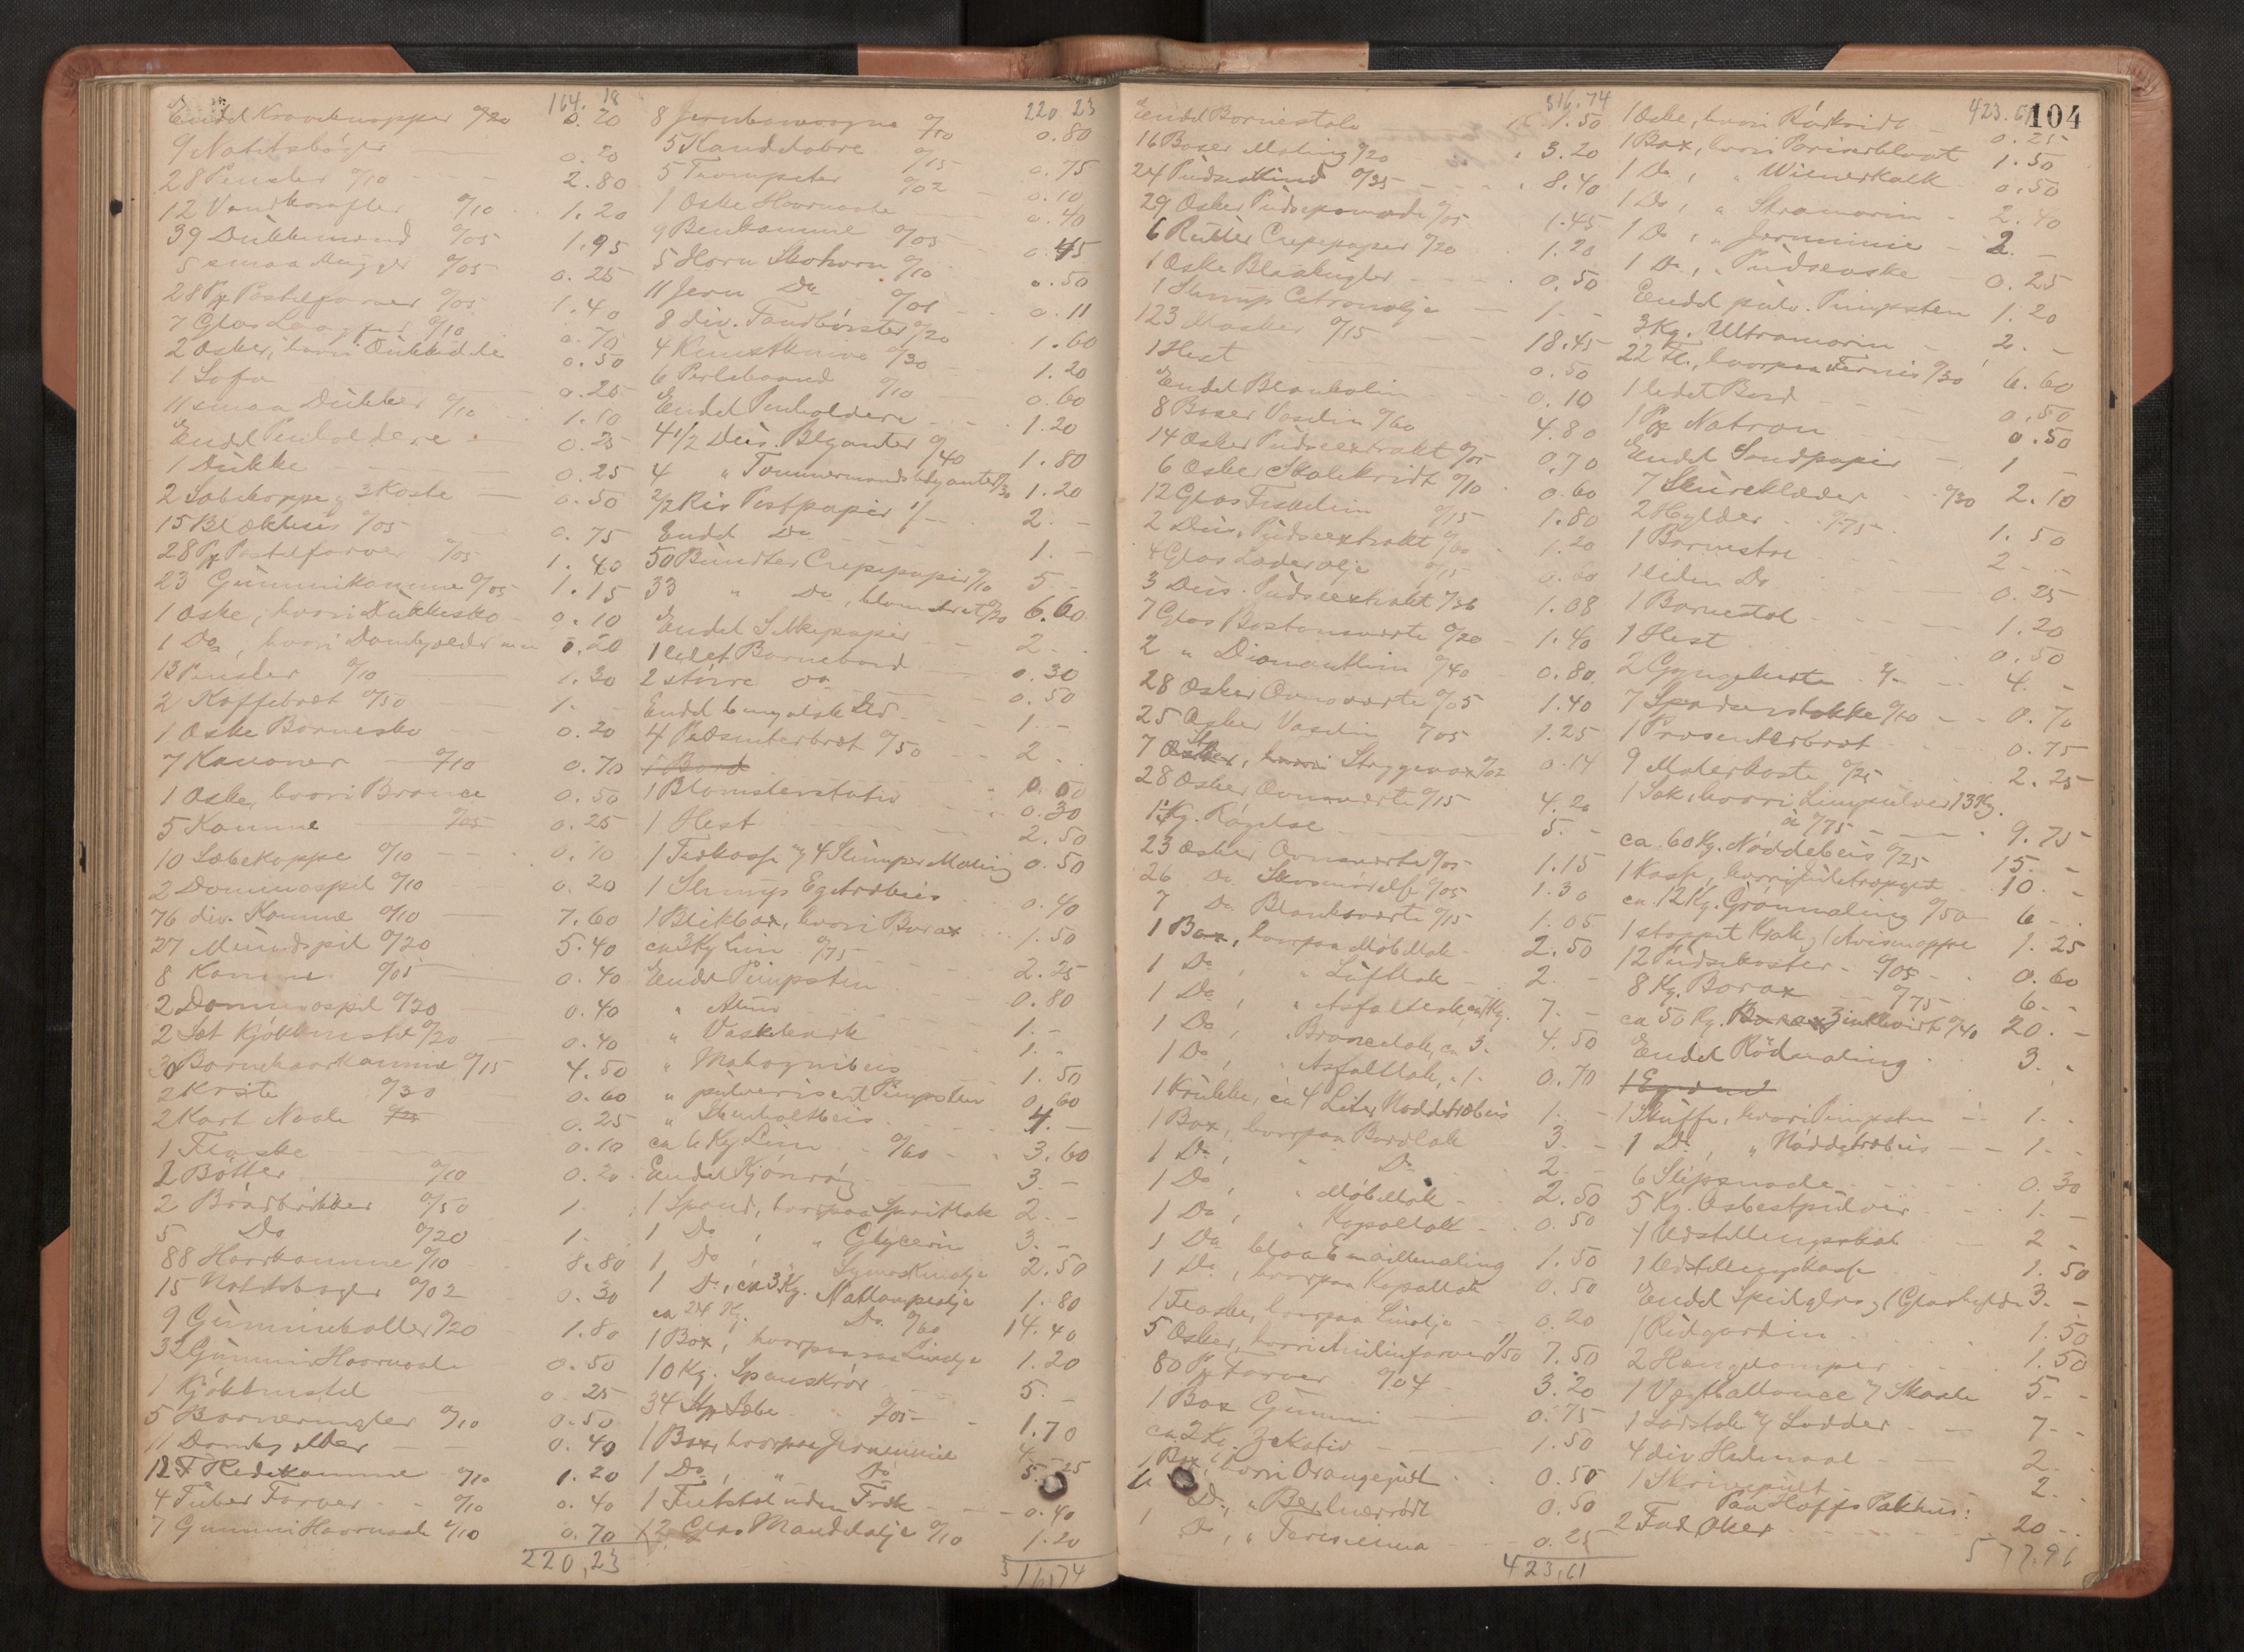 164.18
Endel Kraveknapper 0/20 0.20
9 Notitsbøger 0.20
28 Pensler 0/10 2.80
12 Vandkarafler 0/10 1.20
39 Dukkemænd 0/05 1.95
5 smaa Mugger 0/05 0.25
28 Pk Pastelfarver 0/05 1.40
7 Glas 0/10 0.70
2 Æsker, hvori Dukkedele 0.50
1 Sofa 0.25
11 smaa Dukker 0/10 1.10
Endel Penholdere 0.25
1 Dukke 0.25
2 Sæbekoppe og 3 Koste 0.50
15 Blækhus 0/05 0.75
28 Pk Pastelfarver 0/05 1.40
23 Gummikamme 0/05 1.15
1 Æske, hvori Dukkesko 0.10
1 Do, hvori 0.20
13 Pensler 0/10 1.30
2 Kaffebræt 0/50 1.-
1 Æske Børnesko 0.20
7 Kanoner 0/10 0.70
1 Æske, hvori Bronce 0.50
5 Kamme 0/05 0.25
10 Sæbekoppe 0/10 0.10
2 Dominospil 0/10 0.20
76 div. Kamme 0/10 7.60
27 Mundspil 0/20 5.40
8 Kamme 0/05 0.40
2 Dominospil 0/20 0.40
2 Sæt Kjøkkenstel 0/20 0.40
30 Børnehaarkamme 0/15 4.50
2 Krste 0/30 0.60
2 Kort Naale 0.25
1 Flaske 0.10
2 Bøtter 0/10 0.20
2 Brødbrikker 0/50 1.
5 Do 0/20 1.
88 Haarkamme 0/10 8.80
15 Notitsbøger 0/02 0.30
9 Gummiballer 0/20 1.80
32 Gummi Haarnaale 0.50
1 Kjøkkenstel 0.25
5 Børnerangler 0/10 0.50
11 0.40
12 Redekamme 0/10 1.20
4 Tuber Farver 0/10 0.40
7 Gummi Haarnaale 0/10 0.70
220,23
220 23
8 Jernbanevogne 0/10 0.80
5 Kandelabre 0/15 0.75
5 Trompeter 0/02 0.10
1 Æske Haarnaale 0.40
9 Benkamme 0/05 0.45
5 Horn Skohorn 0/10 0.50
11 Jern Do 0/01 0.11
8 div. Tandbørster 0/20 1.60
4 Kunstknive 0/30 1.20
6 Perlebaand 0/10 0.60
Endel Penholdere 1.20
4 1/2 Dus. Blyanter 0/40 1.80
4 " Tømmermandsblyanter 0/30 1.20
2/2 Ris Postpapir 1/- 2.-
Endel Do 1.-
50 Bundter Crepepapir 0/10 5.-
33 " Do, blomstret 0/20 6.60
Endel Silkepapir 2.
1 lidet Børnebord 0.30
2 større do 0.50
Endel bengalsk Ild 1.-
4 Præsenterbræt 0/50 2.
1 Bord
1 Blomsterstativ 0.50
1 Hest 0.30
2.50
1 Trækasse og 4 Slumper Maling 0.50
1 Slump Egetræbeis 0.40
1 Blikbox, hvori Borax 1.50
ca 3 Kg Lim 0/75 2.25
Endel Pimpsten 0.80
" Alun 1.-
" Vaskebark 1.-
" Mahognibeis 1.50
" pulveriseret Pimpsten 0.60
" 4.-
ca 6 Kg Lim 0/60 3.60
Endel Kjønrøg 3.-
1 Spand, hvorpaa Spritlak 2.-
1 Do, " Glycerin 3.-
1 Do, Symaskinolje 2.50
1 Do, ca 3 Kg. Natlampeolje 1.80
ca 24 Kg. Do 0/60 14.40
1 Box, hvorpaa raa Linolje 1.20
10 Kg. Spanskrør 5.-
34 Stk Sæbe 0/05 1.70
1 Box, hvorpaa Jernmønie
1 Do, " Do 5.25
1 Feltstol uden Træk 0.40
12 Glas Mandelolje 0/10 1.20
316,74
316.74
Endel Børnestole 1.50
16 Boxer Maling 0/20 3.20
24 Pudseskind 0/35 8.40
29 Æsker Pudsepomade 0/05 1.45
6 Ruller Crepepapir 0/20 1.20
1 Æske Blaakugler 0.50
1 Slump Citronolje 1.-
123 Masker 0/15 18.45
1 Hest 0.50
Endel Blankolin 0.10
8 Boxer Vaselin 0/60 4.80
14 Æsker Pudseextrakt 0/05 0.70
6 Æsker Skolekridt 0/10 0.60
12 Glas Fiskelim 0/15 1.80
2 Dus. Pudseextrakt 0/60 1.20
4 Glas Læderolje 0/15 0.60
3 Dus. Pudseextrakt 0/36 1.08
7 Glas Bostonsværte 0/20 1.40
2 " Diamantlim 0/40 0.80
28 Æsker Ovnsværte 0/05 1.40
25 Æsker Vaselin 0/05 1.25
7 Stk Strygevox 0/02 0.14
28 Æsker Ovnsværte 0/15 4.20
1 Kg. Røgelse 5.-
23 Æsker Ovnsværte 0/05 1.15
26 Do Skosmørelse 0/05 1.30
7 Do Blanksværte 0/15 1.05
1 Box, hvorpaa Møbellak 2.50
1 Do, " Luftlak 2.-
1 Do, " Asfaltlak, ca Kg. 7.-
1 Do, Broncelak, ca 3. 4.50
1 Do, Asfaltlak, 0.70
1 Krukke, ca 4 Liter Nøddetræbeis 1.-
1 Box, hvorpaa Bordlak 3.-
1 Do, " Do 2.-
1 Do, " Møbellak 2.50
1 Do, " Kopallak 0.50
1 Do blaa Emaillemaling 1.50
1 Do, hvorpaa Kopallak 0.50
1 Flaske, hvorpaa Linolje 0.20
5 Æsker, hvori Anilinfarver 1/50 7.50
80 Pk Farver 0/04 3.20
1 Box Gummi 0.75
ca 2 Kg. Zekativ 1.50
1 Box, hvori Orangegult 0.50
1 Do, " Berlinerrødt 0.50
1 Do, " Terisienna 0.25
423,61
423.61
104
1 Æske, hvori Rørkridt 0.25
1 Box, hvori Pariserblaat 1.50
1 Do, " Wienerkalk 0.50
1 Do, " 2.40
1 Do, " Jernmønie 2.-
1 Do, " Pudseaske 0.25
Endel pulv. Pimpsten 1.20
3 Kg. Ultramarin 2.-
22 Fl., hvorpaa Fernis 0/30 6.60
1 lidet Bord 0.50
1 Pk Natron 0.50
Endel Sandpapir 1-
7 Skureklæder 0/30 2.10
2 Hylder 0/75 1.50
1 Barnestol 2-
1 liden Do 0.25
1 Barnestol 1.20
1 Hest 0.50
2 Gyngeheste 2/- 4.-
7 Spaserstokke 0/10 0.70
1 Præsenterbræt 0.75
9 Malerkoste 0/25 2.25
1 Sæk, hvori Limpulver 13 Kg.
à 0/75 9.75
ca. 60 Kg. Nøddebeis 0/25 15.-
1 Kasse, hvori Juletræpynt 10.-
ca. 12 Kg. Grønmaling 0/50 6-
1 stoppet Krak, 1 Avismappe 1.25
12 Pudsekoster 0/05 0.60
8 Kg. Borax 0/75 6-
ca 50 Kg. Borax Zinkhvidt 0/40 20.-
Endel Rødmaling 3.-
1 Skuffe, hvori Pimpsten 1.
1 Do, " Nøddetræbeis 1-
6 Slipsnaale 0.30
5 Kg. Asbestpulver 1.-
1 Udstillingsskab 2-
1 Udstillingskasse 1.50
Endel Speilglas, 1 Glashylde 3.-
1 Rulgardin 1.50
2 Hængelamper 1.50
1 Vægtballance og Skaale 5-
1 Lodstok og Lodder 7-
4 div Hulmaal 2.
1 Skrivepult 2.
Paa Hoffs Pakhus:
2 Fad Oker 20-
577.96